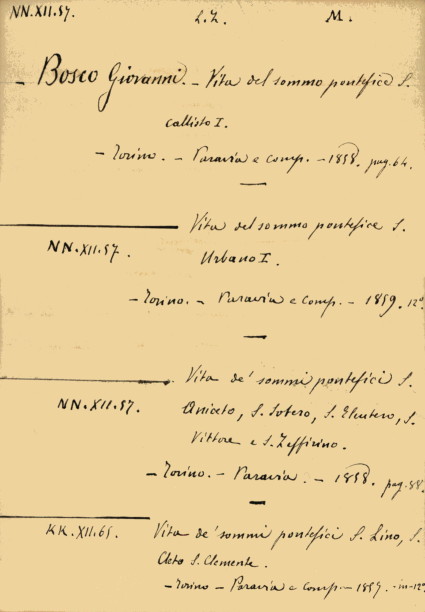 NN.XII.57. L.Z. M.
- Bosco Giovanni. - Vita del sommo pontefice S.
Callisto I.
- Torino. - Paravia e Comp. - 1858. pag. 64.
Vita del sommo pontefice S.
NN.XII.57. Urbano I.
- Torino. - Paravia e Comp. - 1859. 12º
Vita de' sommi pontefici S.
NN.XII.57. Aniceto, S. Sotero, S. Eleutero, S.
Vittore e S. Zeffirino.
- Torino. - Paravia. - 1858. pag. 88.
KK.XII.65. Vita de' sommi pontefici S. Lino, S.
Cleto S. Clemente.
- Torino - Paravia e Comp. - 1857. - in-12º